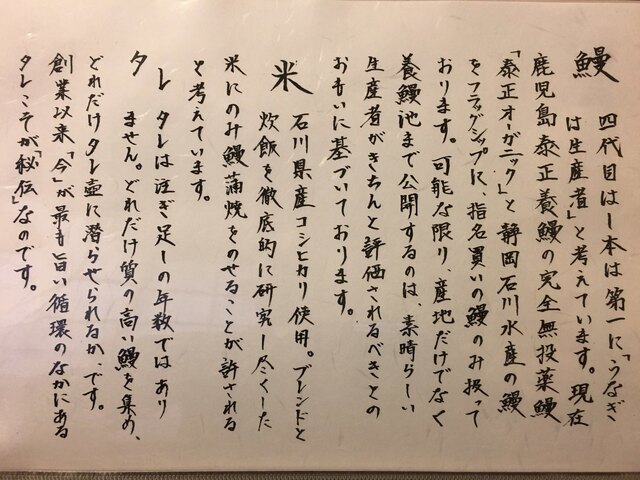 鰻
四代目はし本は第一に「うなぎ
は生産者」と考えています。現在
鹿児島泰正養鰻の完全無投薬鰻
「泰正オーガニック」と静岡石川水産の鰻
をフラッグシップに、指名買いの鰻のみ扱って
おります。可能な限り、産地だけでなく
養鰻池まで公開するのは、素晴らしい
生産者がきちんと評価されるべきとの
おもいに基づいております。
米
石川県産コシヒカリ使用。ブレンドと
炊飯を徹底的に研究し尽くした
米にのみ鰻蒲焼をのせることが許される
と考えています。
タレ
タレは注ぎ足しの年数ではあり
ません。どれだけ質の高い鰻を集め、
どれだけタレ壺に潜らせられるか、です。
創業以来「今」が最も旨い循環のなかにある
タレこそが「秘伝」なのです。